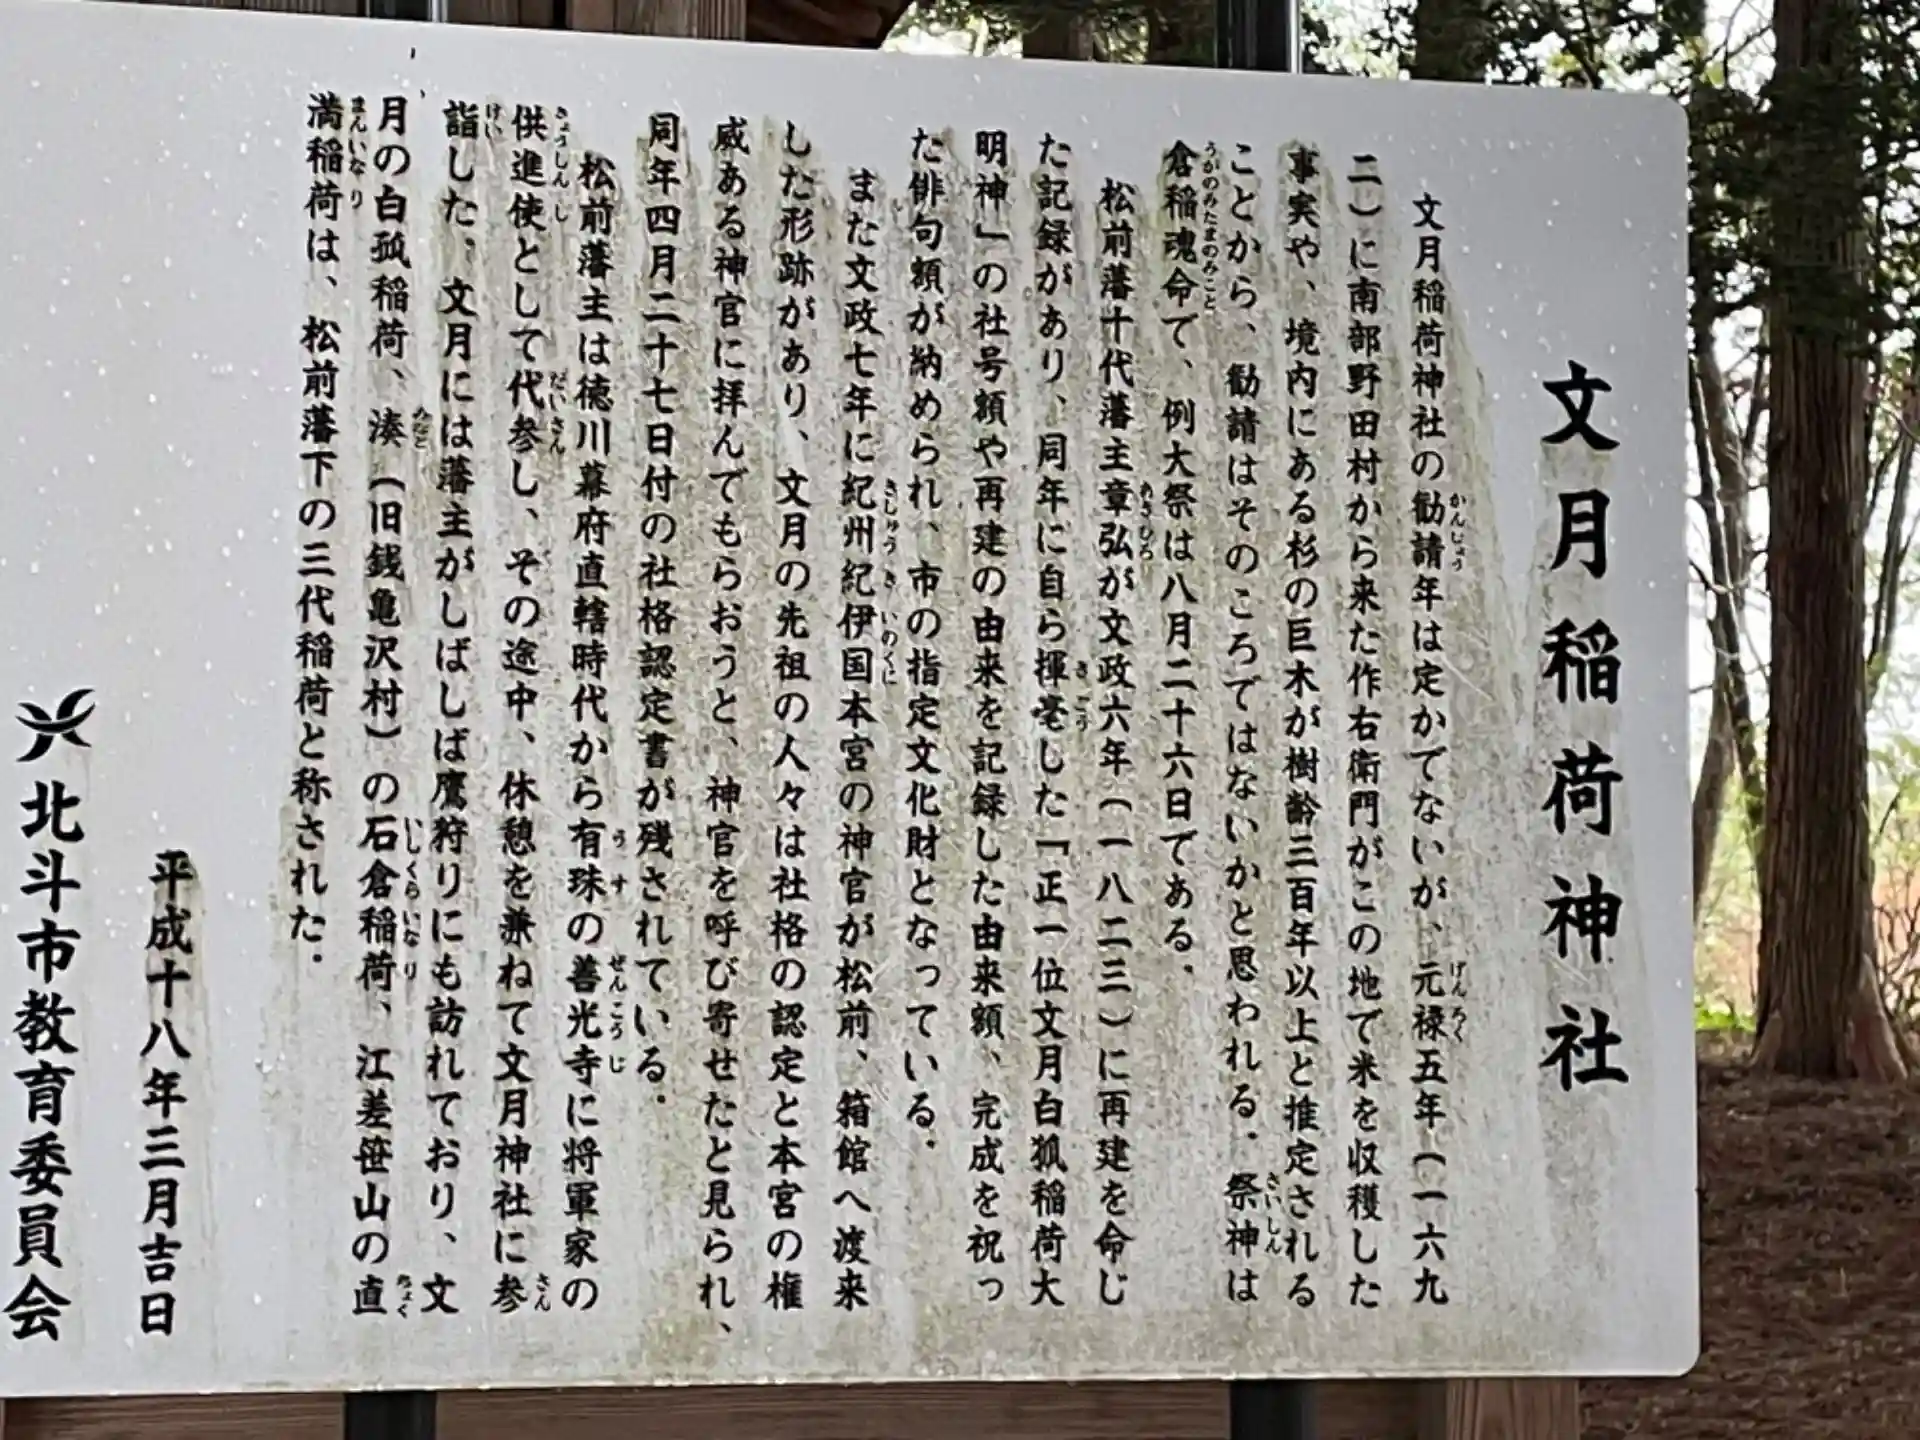 文月稲荷神社
文月稲荷神社の勧請年は定かでないが、元禄五年(一六九
二)に南部野田村から来た作右衛門がこの地で米を収穫した
事実や、境内にある杉の巨木が樹齢三百年以上と推定される
ことから、勧請はそのころではないかと思われる。祭神は
倉稲魂命で、例大祭は八月二十六日である。
松前藩十代藩主章弘が文政六年(一八二三)に再建を命じ
た記録があり、同年に自ら揮毫した「正一位文月白狐稲荷大
明神」の社号額や再建の由来を記録した由来額、完成を祝っ
た俳句額が納められ、市の指定文化財となっている。
また文政七年に紀州紀伊国本宮の神官が松前、箱館へ渡来
した形跡があり、文月の先祖の人々は社格の認定と本宮の権
威ある神官に拝んでもらおうと、神官を呼び寄せたと見られ、
同年四月二十七日付の社格認定書が残されている。
松前藩主は徳川幕府直轄時代から有珠の善光寺に将軍家の
供進使として代参し、その途中、休憩を兼ねて文月神社に参
詣した。文月には藩主がしばしば鷹狩りにも訪れており、文
月の白狐稲荷、湊(旧銭亀沢村)の石倉稲荷、江差笹山の直
満稲荷は、松前藩下の三代稲荷と称された。
平成十八年三月吉日
北斗市教育委員会